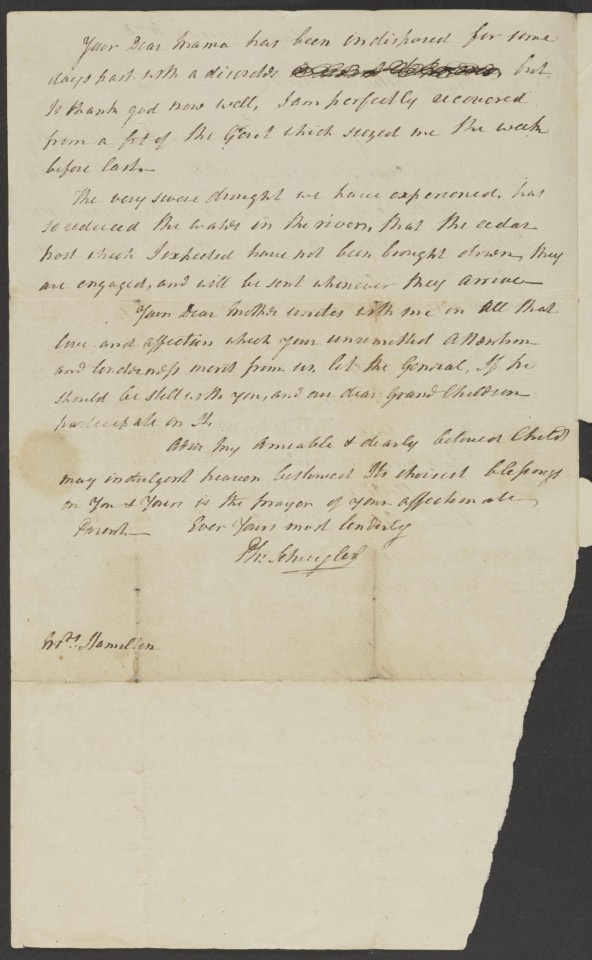 Your Dear Mama has been indisposed for some
days past with a disorder but
is thank god now well, I am perfectly recovered
from a fit of the Gout which seized me the week
before last.
The very severe drought we have experienced, has
so reduced the water in the rivers, that the cedar
post which I expected have not been brought down, they
are engaged, and will be sent whenever they arrive
Your Dear Mother unites with me in all that
love and affection which your unremitted attention
and tenderness merit from us, let the General, If he
should be still with you, and our dear Grand Children
participate in It.
Adieu My Amiable & dearly beloved Child
may indulgent heaven bestowed Its choisest blessings
on You & Yours is the prayer of your affectionate
Parent Ever Yours most tenderly
Ph: Schuyler
Mrs. Hamilton